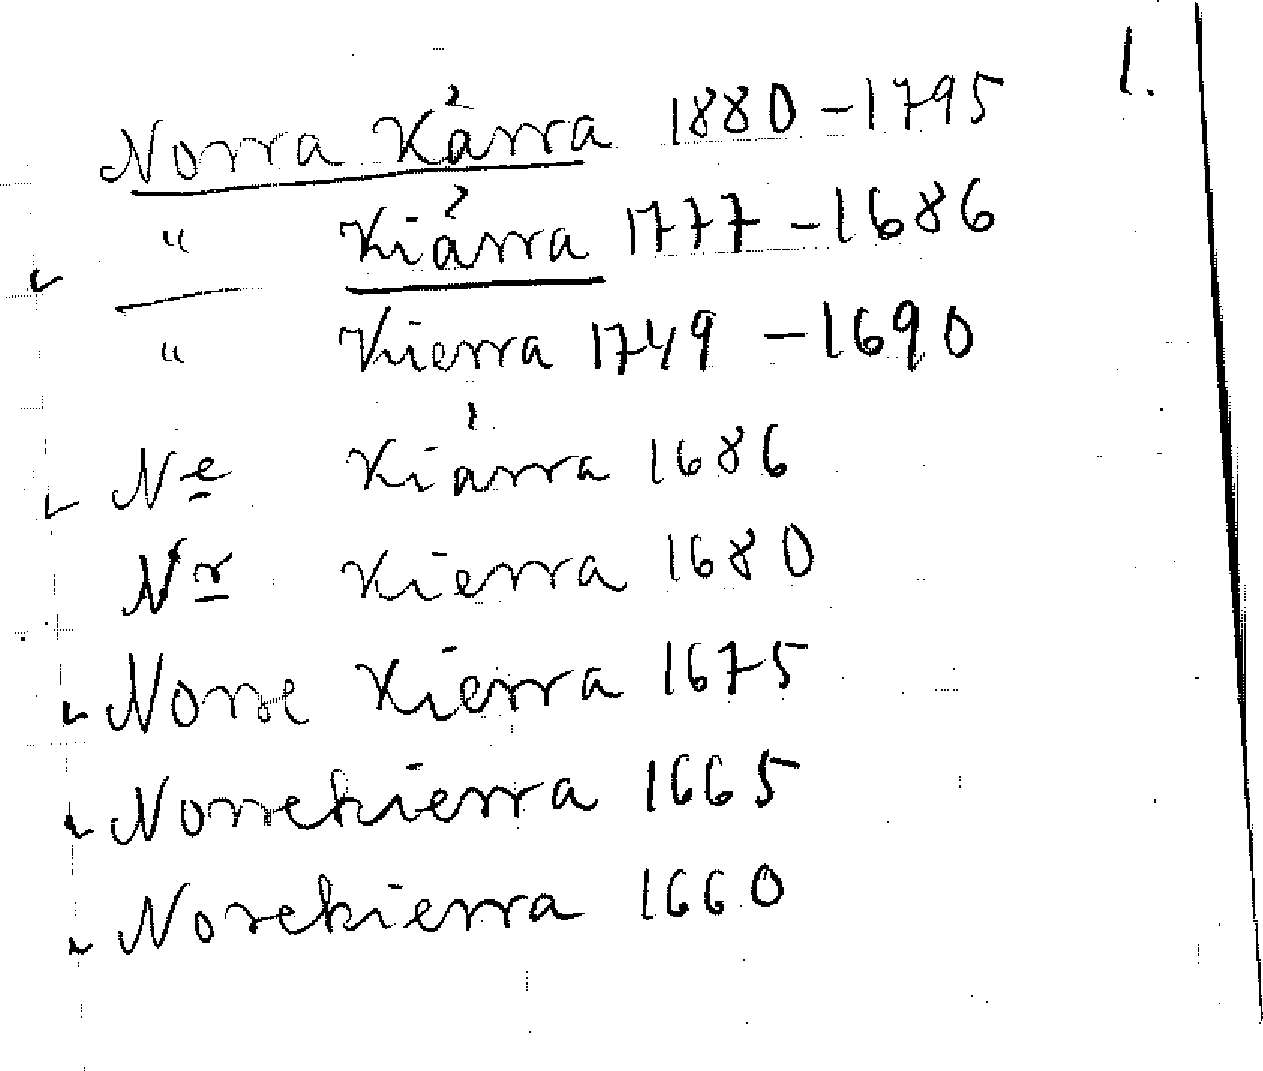 1.
Norra Kårra 1880-1795
" Kiårra 1777-1686
" Kierra 1749-1690
Ne Kiarra 1686
Nr Kierra 1680
Norre Kierra 1675
Norrekierra 1665
Norekierra 1660